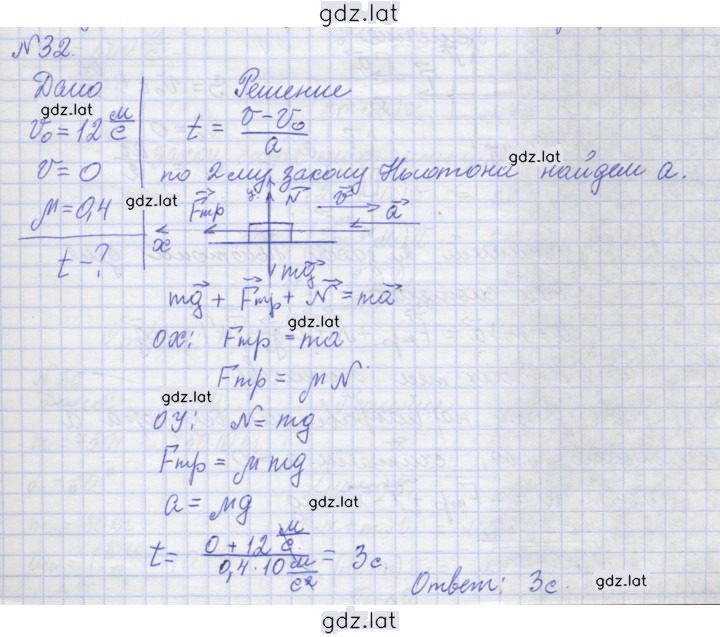 gdz.lat
№32.
Дано
Решение
gdz.lat
v₀ = 12 м/с
t = (v - v₀)/a
v = 0
по 2му закону Ньютона найдем a.
gdz.lat
μ = 0,4
gdz.lat
Fтр
y
N
v
a
x
t - ?
mg
mg + Fтр + N = ma
gdz.lat
OX: Fтр = ma
Fтр = μN
gdz.lat
OY: N = mg
Fтр = μmg
a = μg
gdz.lat
t = (0 + 12 м/с)/(0,4 · 10 м/с²) = 3с.
Ответ: 3с.
gdz.lat
gdz.lat